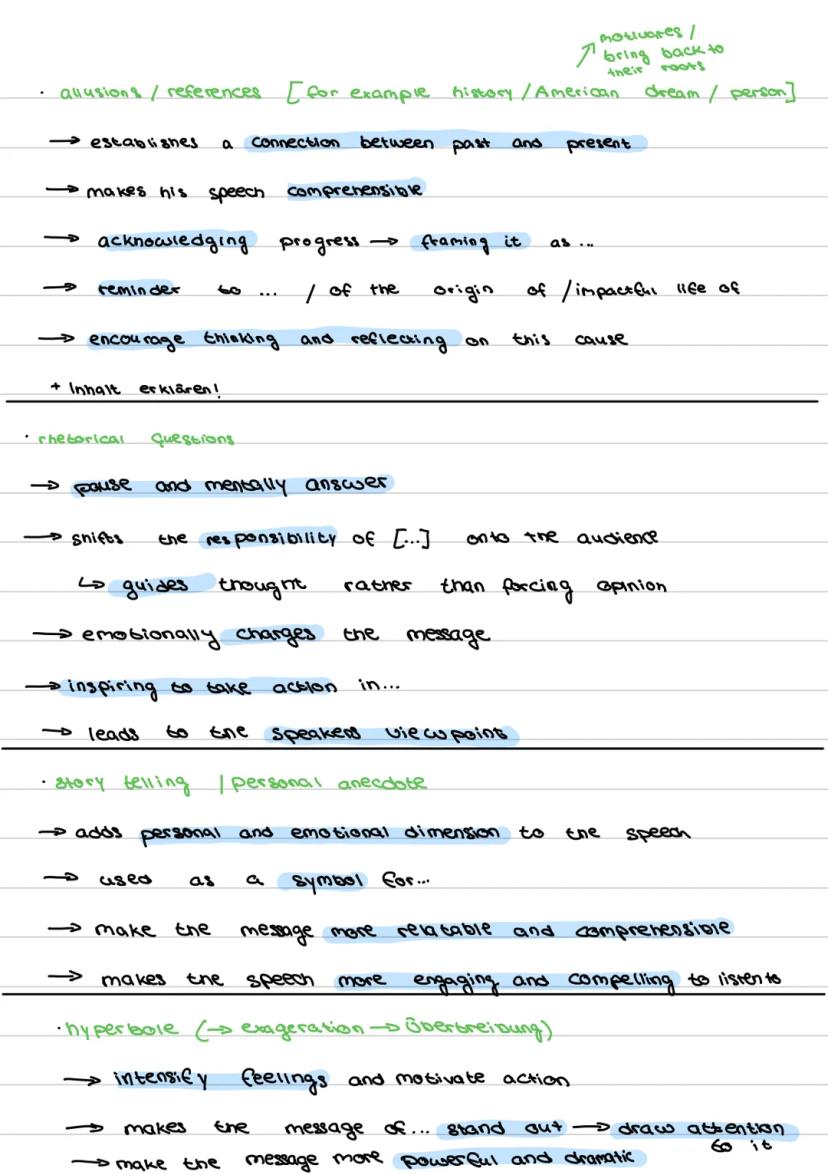 motivates /
bring back to
their roots
· allusions / references [for example history / American dream / person]
→ establishes a connection between past and present
→ makes his speech comprehensible
→ acknowledging progress → framing it as ...
→ reminder to ... / of the origin of / impactful life of
→ encourage thinking and reflecting on this cause
+ Inhalt erklären!
· rhetorical questions
→ pause and mentally answer
→ shifts the responsibility of [...] onto the audience
↳ guides thought rather than forcing opinion
→ emotionally charges the message
→ inspiring to take action in...
→ leads to the speakers viewpoint
· story telling / personal anecdote
→ adds personal and emotional dimension to the speech
→ used as a symbol for...
→ make the message more relatable and comprehensible
→ makes the speech more engaging and compelling to listen to
· hyperbole (→ exageration → Übertreibung)
→ intensify feelings and motivate action
→ makes the message of... stand out → draw attention
to it
→ make the message more powerful and dramatic